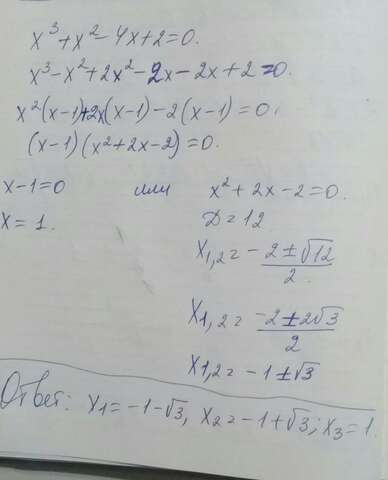 x³+x²-4x+2=0.
x³-x²+2x²-2x-2x+2=0.
x²(x-1)+2x(x-1)-2(x-1)=0.
(x-1)(x²+2x-2)=0.
x-1=0 или x²+2x-2=0.
x=1. D=12
x1,2=-2±√12/2.
x1,2=-2±2√3/2
x1,2=-1±√3
Ответ: x1=-1-√3, x2=-1+√3; x3=1.